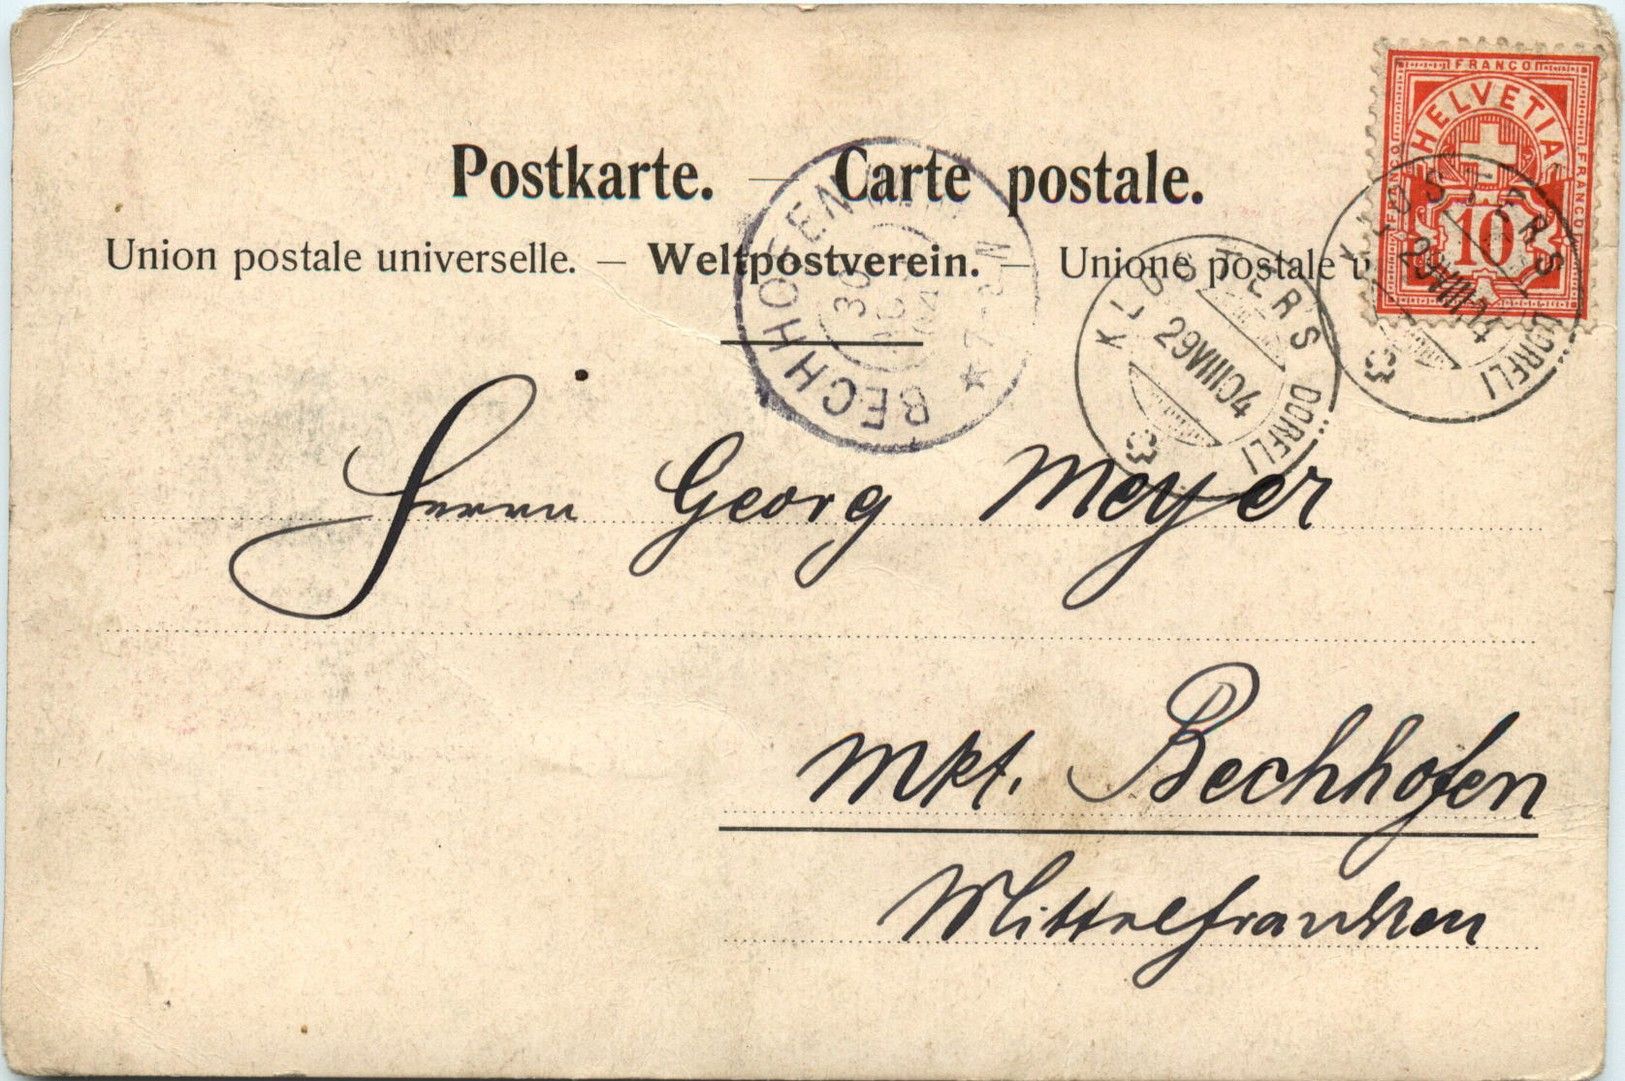 Postkarte. — Carte postale.
Union postale universelle. — Weltpostverein. — Unione postale u
FRANCO
FRANCO
FRANCO
HELVETIA
10
KLOSTERS DÖRFLI
29.VIII.04
KLOSTERS DÖRFLI
29VIII04
BECHHOFEN
30
04
Herrn Georg Meyer
Mkt. Bechhofen
Mittelfranken